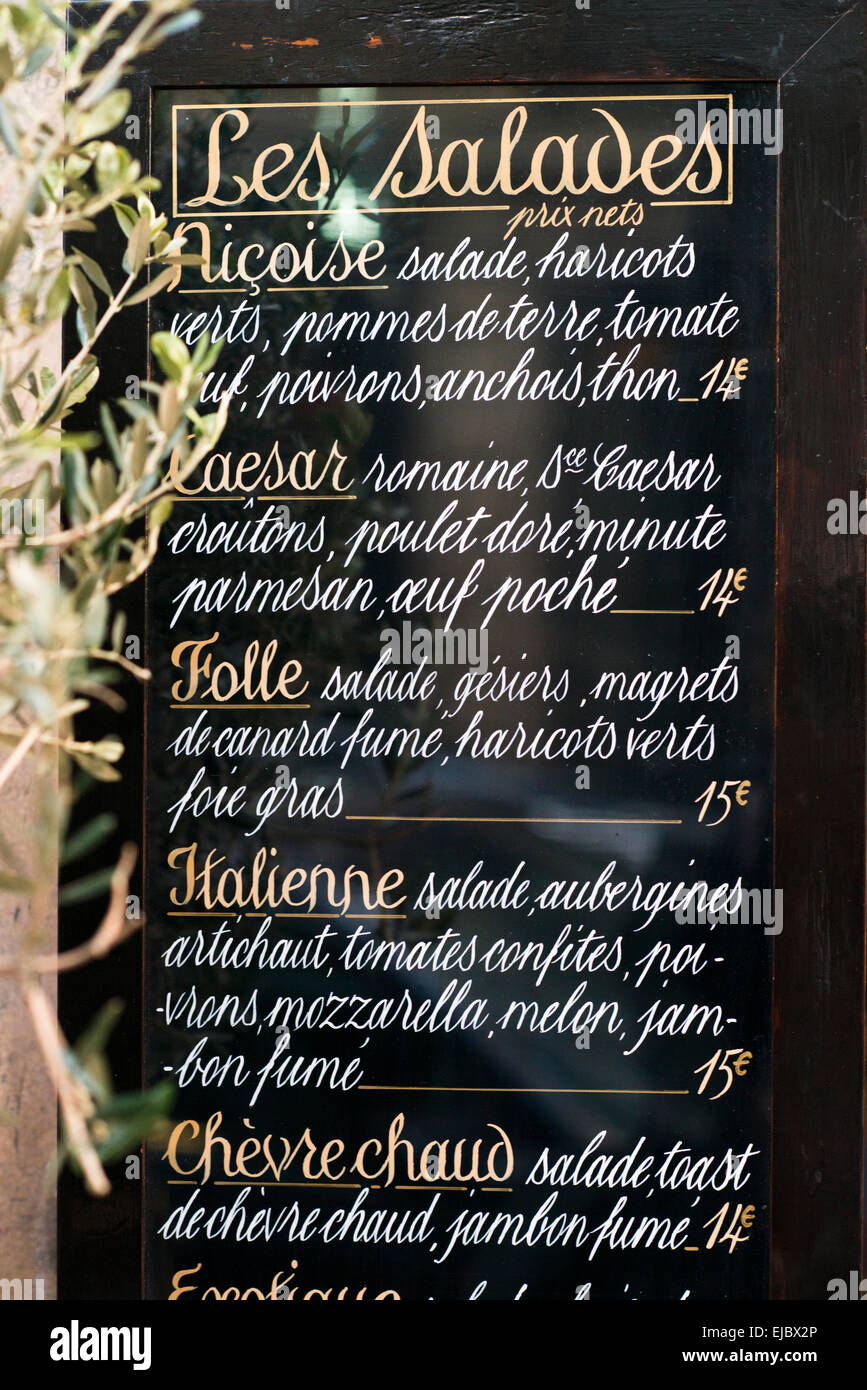 Les Salades
prix nets
Niçoise salade, haricots
verts, pommes de terre, tomate
œuf, poivrons, anchois, thon 14€
Caesar romaine, Sce Caesar
croûtons, poulet doré, minute
parmesan, œuf poché 14€
Folle salade, gésiers, magrets
de canard fumé, haricots verts
foie gras 15€
Italienne salade, aubergines,
artichaut, tomates confites, poi-
-vrons, mozzarella, melon, jam-
-bon fumé 15€
Chèvre chaud salade, toast
de chèvre chaud, jambon fumé 14€
alamy
Image ID: EJBX2P
www.alamy.com